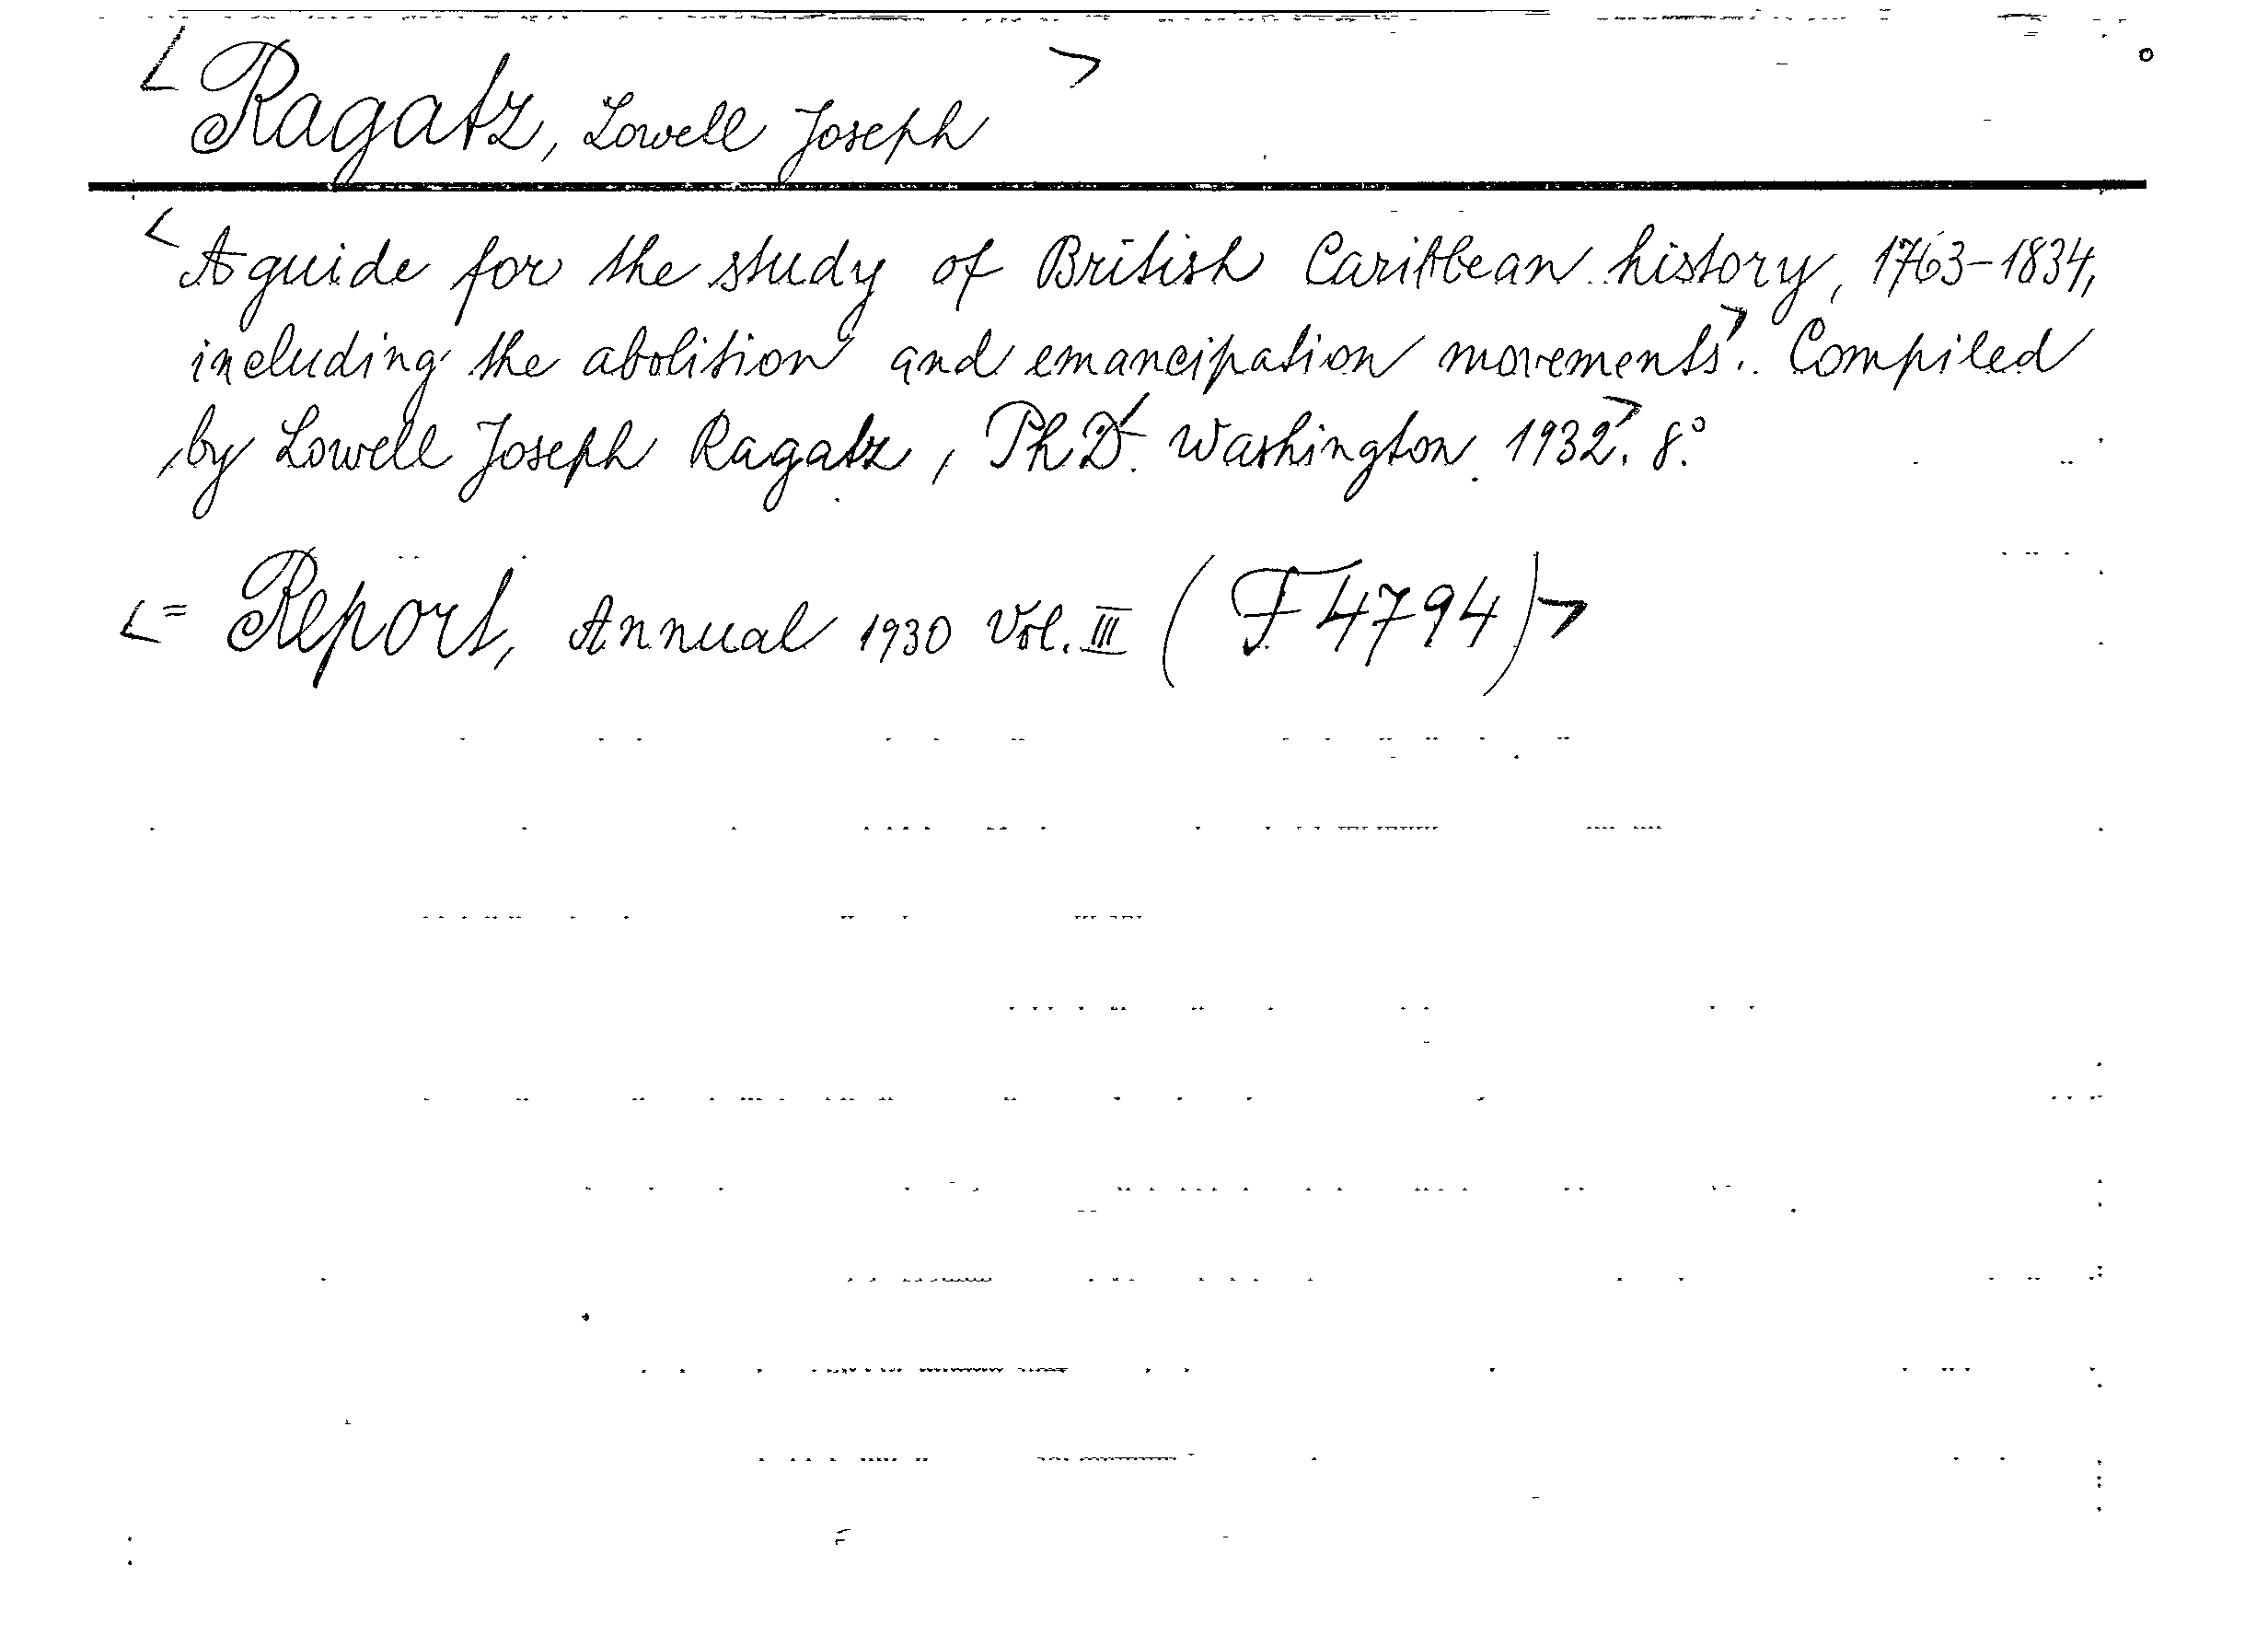 < Ragatz, Lowell Joseph >
< A guide for the study of British Caribbean history, 1763-1834,
including the abolition and emancipation movements >. Compiled
by Lowell Joseph Ragatz, Ph.D. < Washington 1932 >. 8.°
< = Report, Annual 1930 Vol. III (F 4794) >